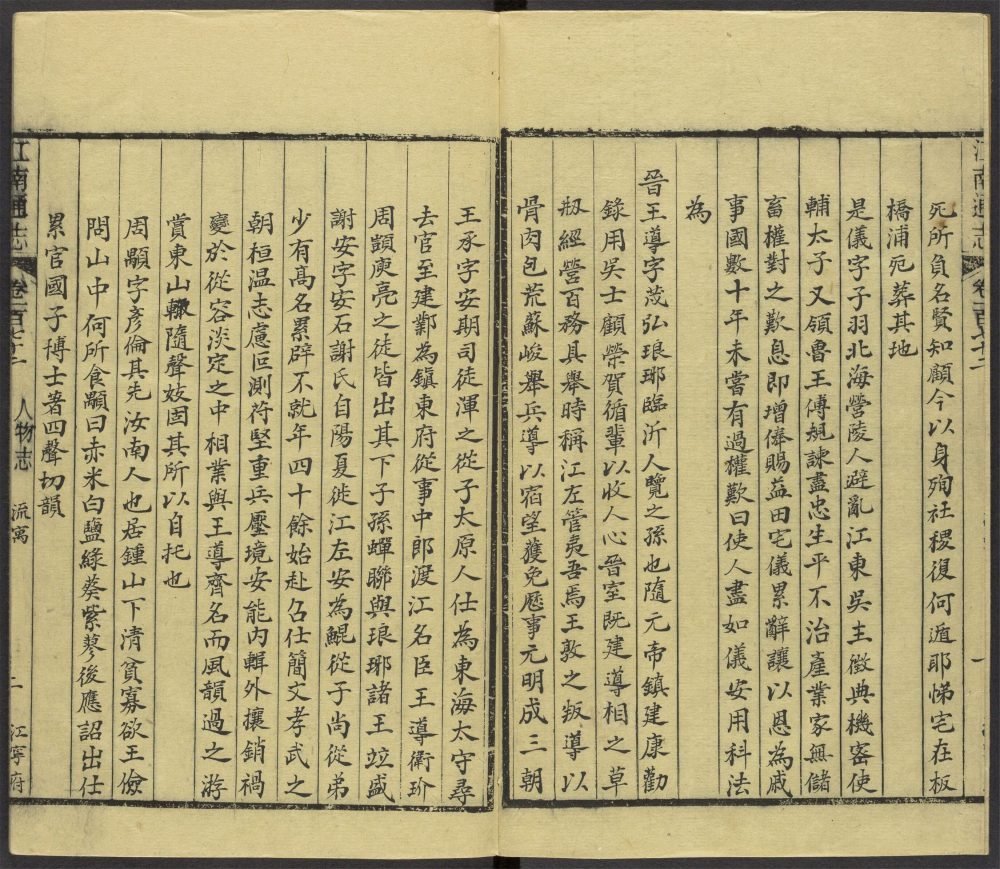 江南通志 卷一百七十二 一
死所負名賢知顧今以身殉社稷復何遁耶悌宅在板
橋浦死葬其地
是儀字子羽北海營陵人避亂江東吳主徵典機密使
輔太子又領魯王傅規諫盡忠生平不治產業家無儲
畜權對之歎息即增俸賜益田宅儀累辭讓以恩為戚
事國數十年未嘗有過權歎曰使人盡如儀安用科法
為
晉王導字茂弘琅琊臨沂人覽之孫也隨元帝鎮建康勸
錄用吳士顧榮賀循輩以收人心晉室既建導相之草
刱經營百務具舉時稱江左管夷吾焉王敦之叛導以
骨肉包荒蘇峻舉兵導以宿望獲免歷事元明成三朝
王承字安期司徒渾之從子太原人仕為東海太守尋
去官至建鄴為鎮東府從事中郎渡江名臣王導衛玠
周顗庾亮之徒皆出其下子孫蟬聯與琅琊諸王竝盛
謝安字安石謝氏自陽夏徙江左安為鯤從子尚從弟
少有高名累辟不就年四十餘始赴召仕簡文孝武之
朝桓温志慮叵測苻堅重兵壓境安能內輯外攘銷禍
變於從容淡定之中相業與王導齊名而風韻過之游
賞東山轍隨聲妓固其所以自托也
周顒字彥倫其先汝南人也居鍾山下清貧寡欲王儉
問山中何所食顒曰赤米白鹽綠葵紫蓼後應詔出仕
累官國子博士著四聲切韻
江南通志 卷一百七十二 人物志 流寓 二 江寧府